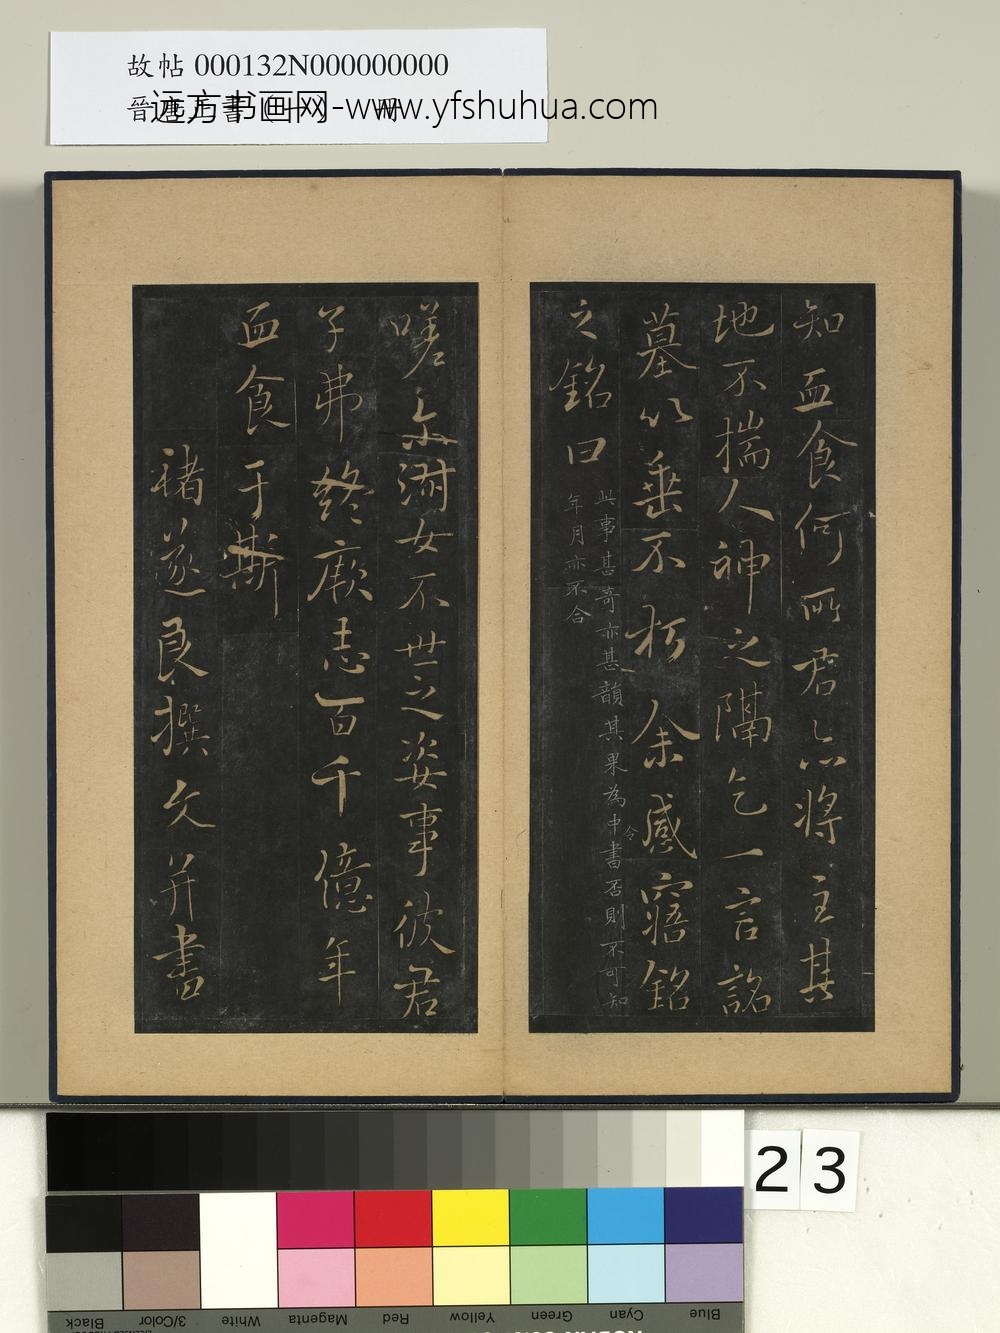 故帖 000132N000000000
远方书画网-www.yfshuhua.com
知血食何所君亦將主其
地不揣人神之隔乞一言詺
墓以垂不朽余感寤銘
之銘曰
此事甚奇亦甚韻其果為中書令否則不可知
年月亦不合
嗟尒謝女不世之姿事彼君
子弗終厥志百千億年
血食于斯
褚遂良撰文并書
23
Black
3/Color
White
Magenta
Red
Yellow
Green
Cyan
Blue